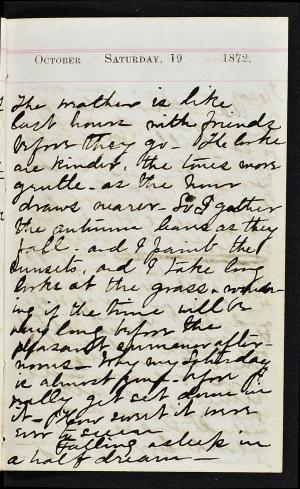 October Saturday, 19 1872.
The weather is like
last hours with friends
before they go - The looks
are kinder, the tones more
gentle - as the hour
draws nearer - So I gather
the autumn leaves as they
fall - and I paint the
sunsets, and I take long
looks at the grass, wonder-
ing if the time will be
very long before the
pleasant summer after-
noons - Why my Saturday
is almost gone - before I
really get set down in
it - How sweet it were
ever to seem
Falling asleep in
a half dream -